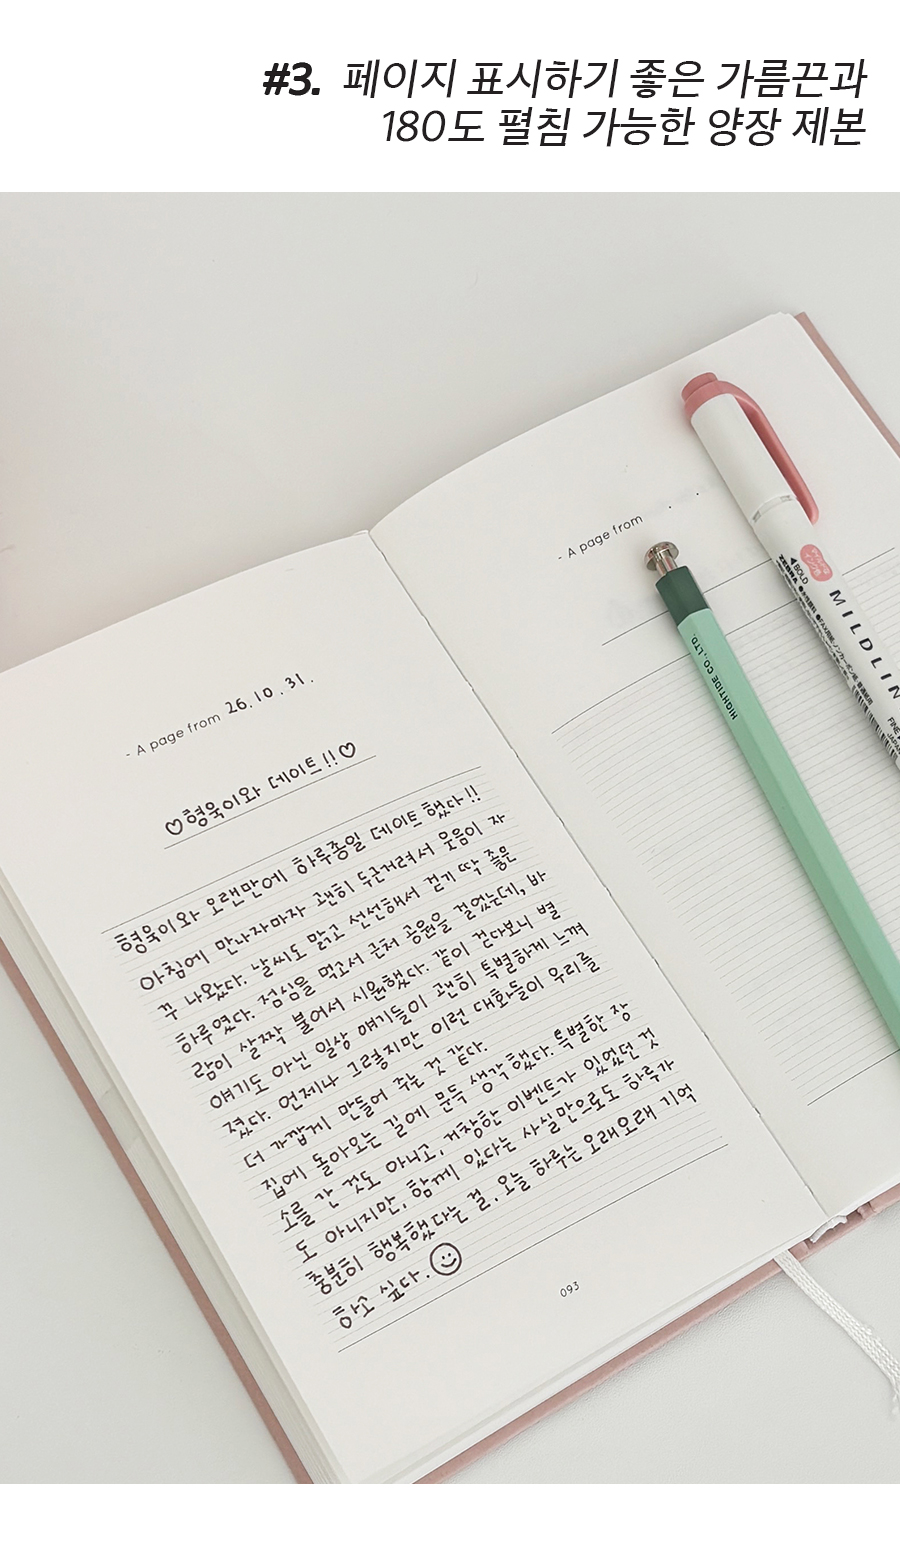 #3. 페이지 표시하기 좋은 가름끈과
180도 펼침 가능한 양장 제본
- A page from 26.10.31.
♡형욱이와 데이트!!♡
형욱이와 오랜만에 하루종일 데이트 했다!!
아침에 만나자마자 괜히 두근거려서 웃음이 자
꾸 나왔다. 날씨도 맑고 선선해서 걷기 딱 좋은
하루였다. 점심을 먹고서 근처 공원을 걸었는데, 바
람이 살짝 불어서 시원했다. 같이 걷다보니 별
얘기도 아닌 일상 얘기들이 괜히 특별하게 느껴
졌다. 언제나 그렇지만 이런 대화들이 우리를
더 가깝게 만들어 주는 것 같다.
집에 돌아오는 길에 문득 생각했다. 특별한 장
소를 간 것도 아니고, 거창한 이벤트가 있었던 것
도 아니지만, 함께 있다는 사실만으로도 하루가
충분히 행복했다는 걸. 오늘 하루는 오래오래 기억
하고 싶다. ☺
093
- A page from
HIGHTIDE CO., LTD.
ZEBRA
BOLD
MILDLIN
FINE
JAPAN